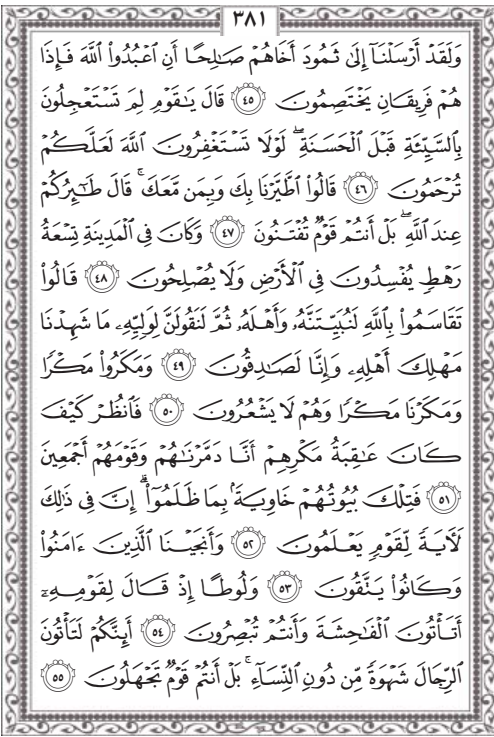 ٣٨١
وَلَقَدْ أَرْسَلْنَآ إِلَىٰ ثَمُودَ أَخَاهُمْ صَٰلِحًا أَنِ ٱعْبُدُوا۟ ٱللَّهَ فَإِذَا
هُمْ فَرِيقَانِ يَخْتَصِمُونَ ٤٥ قَالَ يَٰقَوْمِ لِمَ تَسْتَعْجِلُونَ
بِٱلسَّيِّئَةِ قَبْلَ ٱلْحَسَنَةِ ۖ لَوْلَا تَسْتَغْفِرُونَ ٱللَّهَ لَعَلَّكُمْ
تُرْحَمُونَ ٤٦ قَالُوا۟ ٱطَّيَّرْنَا بِكَ وَبِمَن مَّعَكَ ۚ قَالَ طَٰٓئِرُكُمْ
عِندَ ٱللَّهِ ۖ بَلْ أَنتُمْ قَوْمٌ تُفْتَنُونَ ٤٧ وَكَانَ فِى ٱلْمَدِينَةِ تِسْعَةُ
رَهْطٍ يُفْسِدُونَ فِى ٱلْأَرْضِ وَلَا يُصْلِحُونَ ٤٨ قَالُوا۟
تَقَاسَمُوا۟ بِٱللَّهِ لَنُبَيِّتَنَّهُۥ وَأَهْلَهُۥ ثُمَّ لَنَقُولَنَّ لِوَلِيِّهِۦ مَا شَهِدْنَا
مَهْلِكَ أَهْلِهِۦ وَإِنَّا لَصَٰدِقُونَ ٤٩ وَمَكَرُوا۟ مَكْرًا
وَمَكَرْنَا مَكْرًا وَهُمْ لَا يَشْعُرُونَ ٥٠ فَٱنظُرْ كَيْفَ
كَانَ عَٰقِبَةُ مَكْرِهِمْ أَنَّا دَمَّرْنَٰهُمْ وَقَوْمَهُمْ أَجْمَعِينَ
٥١ فَتِلْكَ بُيُوتُهُمْ خَاوِيَةًۢ بِمَا ظَلَمُوٓا۟ ۗ إِنَّ فِى ذَٰلِكَ
لَءَايَةً لِّقَوْمٍ يَعْلَمُونَ ٥٢ وَأَنجَيْنَا ٱلَّذِينَ ءَامَنُوا۟
وَكَانُوا۟ يَتَّقُونَ ٥٣ وَلُوطًا إِذْ قَالَ لِقَوْمِهِۦٓ
أَتَأْتُونَ ٱلْفَٰحِشَةَ وَأَنتُمْ تُبْصِرُونَ ٥٤ أَئِنَّكُمْ لَتَأْتُونَ
ٱلرِّجَالَ شَهْوَةً مِّن دُونِ ٱلنِّسَآءِ ۚ بَلْ أَنتُمْ قَوْمٌ تَجْهَلُونَ ٥٥